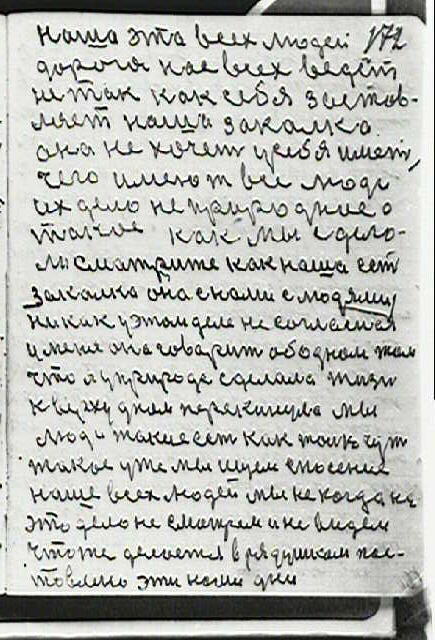 наша эта всех людей 172
дорога нас всех ведёт
не так как себя застав-
ляет наша закалка
она не хочет у себя иметь
чего имеют все люди
их дело не природное а
такое как мы сдела-
ли смотрите как наша ест
закалка она с нами с людями
никак у этом деле не согласная
у меня она говарит об одном том
что я у природе сделала жизн
к верху дном перекинула мы
люди такие ест как тоик тут
такое уже мы ищем спосение
наше всех людей мы не когда на
это дело не смотрем и не видем
что же делается в рядушком пос-
тавлено эти наши дни